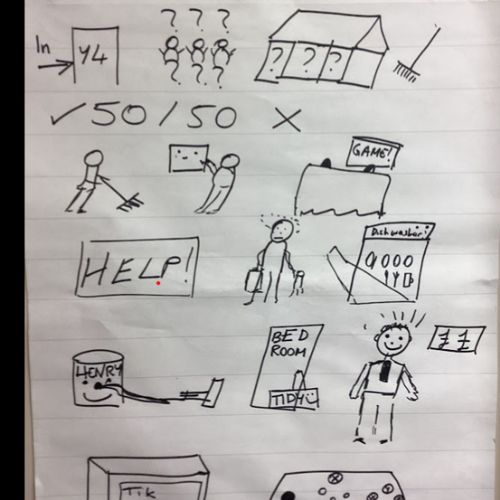 In
Y4
? ? ?
? ? ?
? ? ?
✓ 50/50 X
GAME!
HELP!
Dishwasher!
HENRY
BED
ROOM
TIDY
£ £
Tik